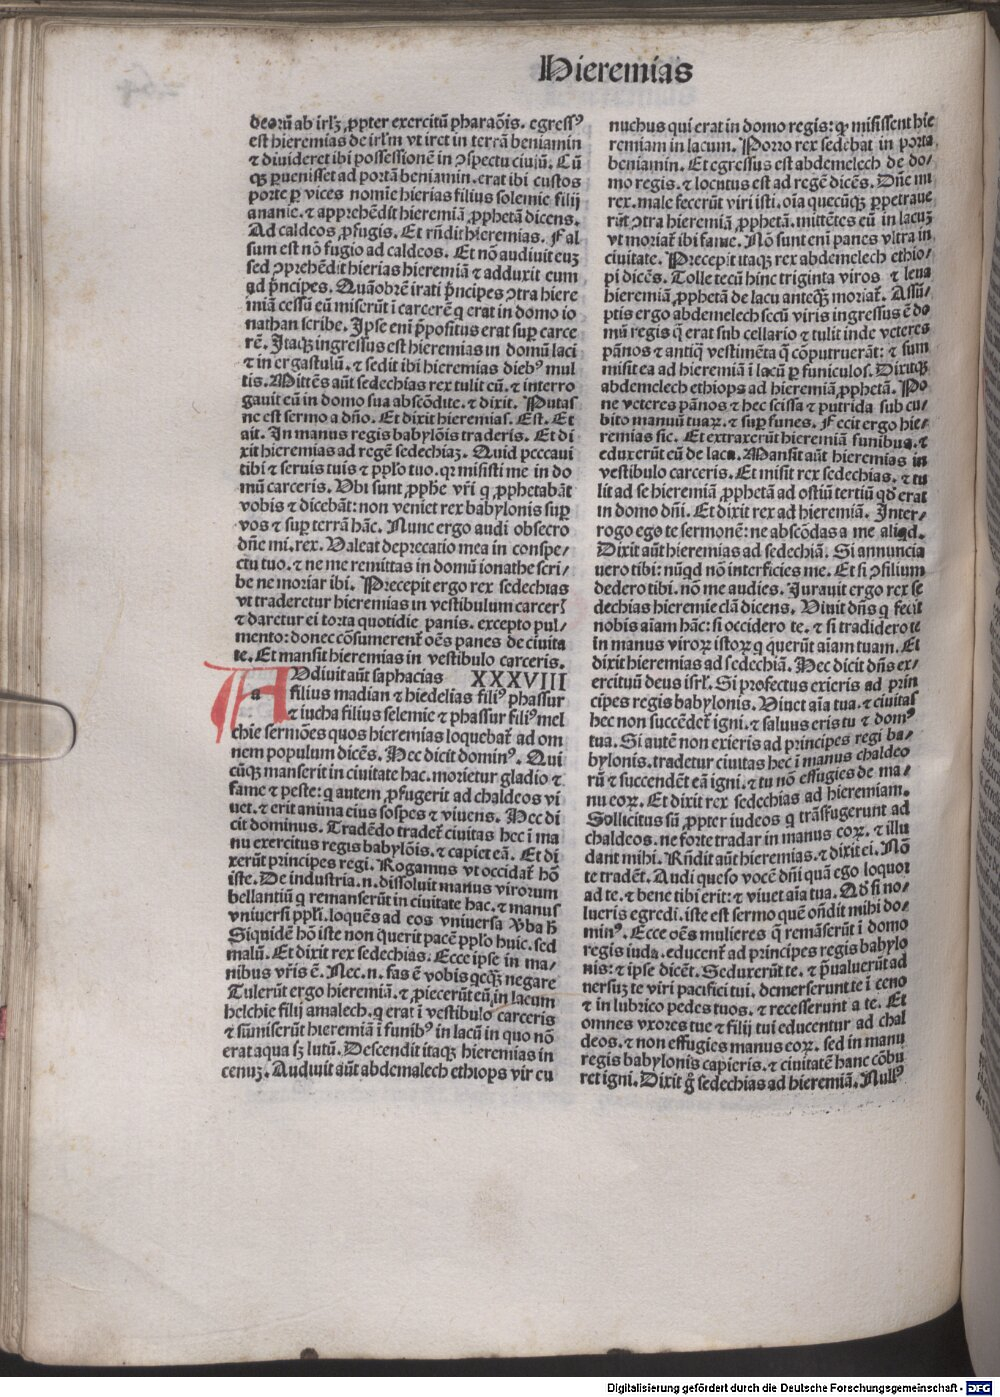 Hieremias
deorū ab irlꝫ ꝓpter exercitū pharaōis. egressꝰ
est hieremias de irlm̄ vt iret in terrā beniamin
⁊ diuideret ibi possessionē in ↄspectu ciuiū. Cū
qꝫ ꝑuenisset ad portā beniamin. erat ibi custos
porte ꝑ vices nomīe hierias filius solemie filij
ananie. ⁊ apprehēdit hieremiā ꝓphetā dicens.
Ad caldeos ꝓfugis. Et rn̄dit hieremias. Fal
sum est nō fugio ad caldeos. Et nō audiuit euꝫ
sed ↄprehēdit hierias hieremiā ⁊ adduxit eum
ad p̄ncipes. Quāobrē irati p̄ncipes ↄtra hiere
miā cessū eū miserūt ī carcerē q erat in domo io
nathan scribe. Ipse enī p̄positus erat suꝑ carce
rē. Itaqꝫ ingressus est hieremias in domū laci
⁊ in ergastulū. ⁊ sedit ibi hieremias diebꝰ mul
tis. Mittēs aūt sedechias rex tulit eū. ⁊ interro
gauit eū in domo sua abscōdite. ⁊ dixit. Putas
ne est sermo a dn̄o. Et dixit hieremias. Est. Et
ait. In manus regis babylōis traderis. Et di
xit hieremias ad regē sedechiaꝫ. Quid peccaui
tibi ⁊ seruis tuis ⁊ pplo tuo. qꝛ misisti me in do
mū carceris. Vbi sunt ꝓphe vr̄i q ꝓphetabāt
vobis ⁊ dicebāt: non veniet rex babylonis suꝑ
vos ⁊ suꝑ terrā hāc. Nunc ergo audi obsecro
dn̄e mi. rex. Valeat deprecatio mea in conspe/
ctu tuo. ⁊ ne me remittas in domū ionathe scri/
be ne moriar ibi. Precepit ergo rex sedechias
vt traderetur hieremias in vestibulum carcerꝭ
⁊ daretur ei torta quotidie panis. excepto pul/
mento: donec cōsumerent̄ oēs panes de ciuita
te. Et mansit hieremias in vestibulo carceris.
Audiuit aūt saphacias XXXVIII
a filius madian ⁊ hiedelias filiꝰ phassur
⁊ iucha filius selemie ⁊ phassur filiꝰ mel
chie sermōes quos hieremias loquebat̄ ad om
nem populum dicēs. Hec dicit dominꝰ. Qui
cūqꝫ manserit in ciuitate hac. morietur gladio ⁊
fame ⁊ peste: q autem ꝓfugerit ad chaldeos vi
uet. ⁊ erit anima eius sospes ⁊ viuens. Hec di
cit dominus. Tradēdo tradet̄ ciuitas hec ī ma
nu exercitus regis babylōis. ⁊ capiet eā. Et di
xerūt principes regi. Rogamus vt occidat̄ hō
iste. De industria .n. dissoluit manus virorum
bellantiū q remanserūt in ciuitate hac. ⁊ manus
vniuersi ppli. loquēs ad eos vniuersa ꝟba h̄
Siquidē hō iste non querit pacē pplo huic. sed
malū. Et dixit rex sedechias. Ecce ipse in ma/
nibus vr̄is ē. Nec .n. fas ē vobis qcqꝫ negare
Tulerūt ergo hieremiā. ⁊ ꝓiecerūt eū in lacum
helchie filij amalech. q erat ī vestibulo carceris
⁊ sūmiserūt hieremiā ī funibꝰ in lacū in quo nō
erat aqua sꝫ lutū. Descendit itaqꝫ hieremias in
cenuꝫ. Audiuit aūt abdemalech ethiops vir eu
nuchus qui erat in domo regis: qꝛ misissent hie
remiam in lacum. Porro rex sedebat in porta
beniamin. Et egressus est abdemelech de do/
mo regis. ⁊ locutus est ad regē dicēs. Dn̄e mi
rex. male fecerūt viri isti. oīa quecūqꝫ ꝑpetraue
rūt ↄtra hieremiā ꝓphetā. mittētes eū in lacuꝫ
vt moriat̄ ibi fame. Nō sunt enī panes vltra in
ciuitate. Precepit itaqꝫ rex abdemelech ethio/
pi dicēs. Tolle tecū hinc triginta viros ⁊ leua
hieremiā ꝓphetā de lacu anteqꝫ moriat̄. Assū/
ptis ergo abdemelech secū viris ingressus ē do
mū regis q̄ erat sub cellario ⁊ tulit inde veteres
pānos ⁊ antiq̄ vestimēta q̄ cōputruerāt: ⁊ sum
misit ea ad hieremiā ī lacū ꝑ funiculos. Dixitqꝫ
abdemelech ethiops ad hieremiā ꝓphetā. Po
ne veteres pānos ⁊ hec scissa ⁊ putrida sub cu/
bito manuū tuaꝝ. ⁊ suꝑ funes. Fecit ergo hie/
remias sic. Et extraxerūt hieremiā funibus. ⁊
eduxerūt eū de lacu. Mansit aūt hieremias in
vestibulo carceris. Et misit rex sedechias. ⁊ tu
lit ad se hieremiā ꝓphetā ad ostiū tertiū qd̄ erat
in domo dn̄i. Et dixit rex ad hieremiā. Inter/
rogo ego te sermonē: ne abscōdas a me aliqd.
Dixit aūt hieremias ad sedechiā. Si annuncia
uero tibi: nūqd nō interficies me. Et si ↄsilium
dedero tibi. nō me audies. Jurauit ergo rex se
dechias hieremie clā dicens. Viuit dn̄s q fecit
nobis aīam hāc: si occidero te. ⁊ si tradidero te
in manus viroꝝ istoꝝ q querūt aīam tuam. Et
dixit hieremias ad sedechiā. Hec dicit dn̄s ex/
ercituū deus isrl. Si profectus exieris ad prin
cipes regis babylonis. Viuet aīa tua. ⁊ ciuitas
hec non succēdet̄ igni. ⁊ saluus eris tu ⁊ domꝰ
tua. Si autē non exieris ad principes regi ba/
bylonis. tradetur ciuitas hec ī manus chaldeo
rū ⁊ succendēt eā igni. ⁊ tu nō effugies de ma/
nu eoꝝ. Et dixit rex sedechias ad hieremiam.
Sollicitus sū ꝓpter iudeos q trāsfugerunt ad
chaldeos. ne forte tradar in manus eoꝝ. ⁊ illu
dant mihi. Rn̄dit aūt hieremias. ⁊ dixit ei. Nō
te tradēt. Audi queso vocē dn̄i quā ego loquor
ad te. ⁊ bene tibi erit: ⁊ viuet aīa tua. Qd̄ si no/
lueris egredi. iste est sermo quē on̄dit mihi do/
minꝰ. Ecce oēs mulieres q̄ remāserūt ī domo
regis iuda. educent̄ ad principes regis babylo
nis: ⁊ ipse dicēt. Seduxerūt te. ⁊ p̄ualuerūt ad
uersuꝫ te viri pacifici tui. demerserunt te ī ceno
⁊ in lubrico pedes tuos. ⁊ recesserunt a te. Et
omnes vxores tue ⁊ filij tui educentur ad chal
deos. ⁊ non effugies manus eoꝝ. sed in manu
regis babylonis capieris. ⁊ ciuitatē hanc cōbu
ret igni. Dixit g̊ sedechias ad hieremiā. Nullꝰ
Digitalisierung gefördert durch die Deutsche Forschungsgemeinschaft - DFG